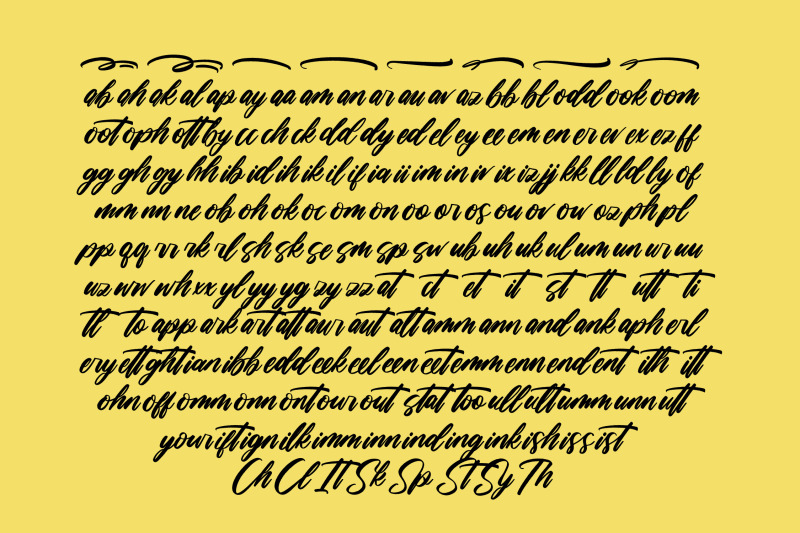 ab ah ak al ap ay aa am an ar au av az bb bl odd ook oom
oot oph ott by cc ch ck dd dy ed el ey ee em en er ev ex ez ff
gg gh gy hh ib id ih ik il if ia ii im in iv ix iz jj kk ll ld ly of
mm nn ne ob oh ok oc om on oo or os ou ov ow oz ph pl
pp qq rr rk rl sh sk se sm sp sw ub uh uk ul um un ur uu
uz wr wh xx yl yy yg zy zz at ct et it st tt utt ti
tl to app ark art att aur aut att amm ann and ank aph erl
ery ett ght ian ibb edd eek eel een eet emm enn end ent ith itt
ohn off omm onn ont our out stat too ull ult umm unn utt
your ift ign ilk imm inn ind ing ink ish iss ist
Ch Cl It Sk Sp St Sy Th